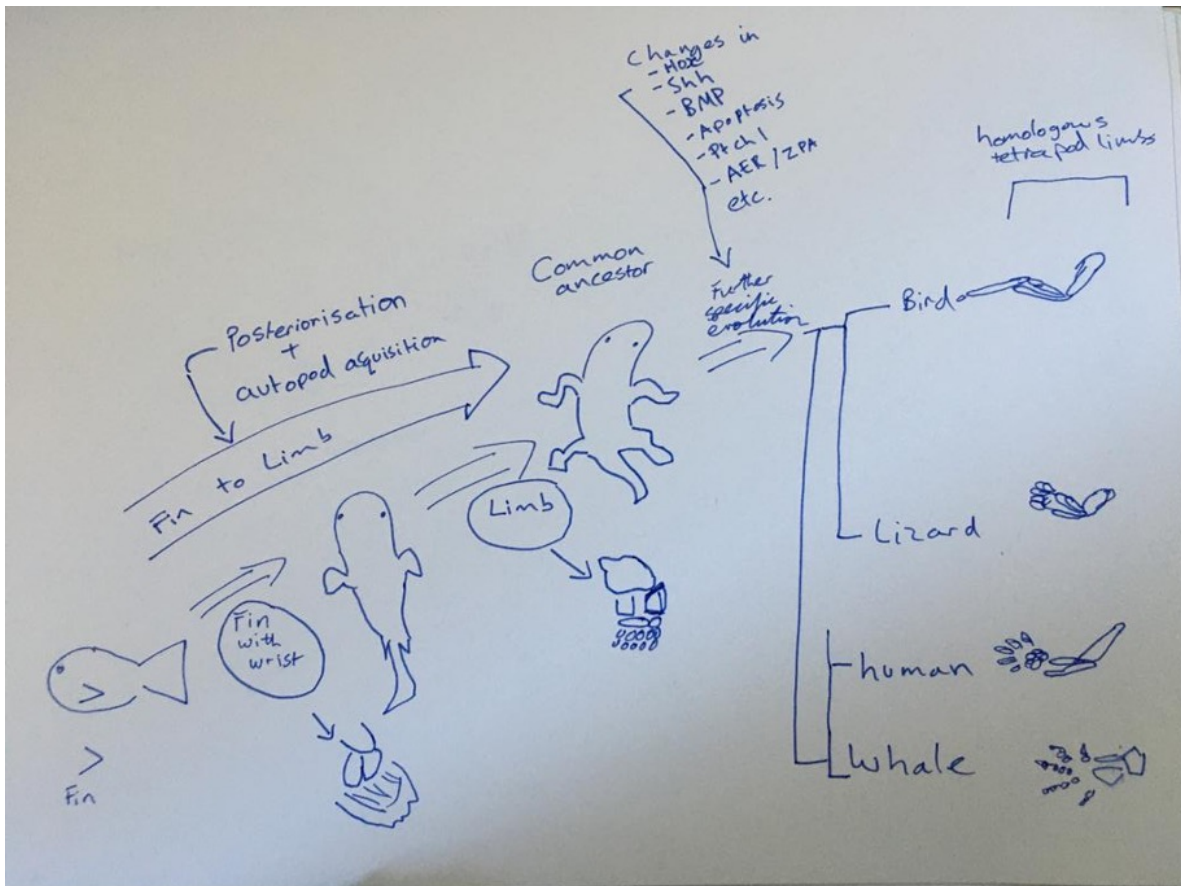 Changes in
- Hox
- Shh
- BMP
- Apoptosis
- Ptch1
- AER / ZPA
etc.
homologous
tetrapod limbs
Common
ancestor
Further
specific
evolution
Posteriorisation
+
autopod aquisition
Fin to Limb
Bird
Limb
Lizard
Fin
with
wrist
human
Whale
Fin